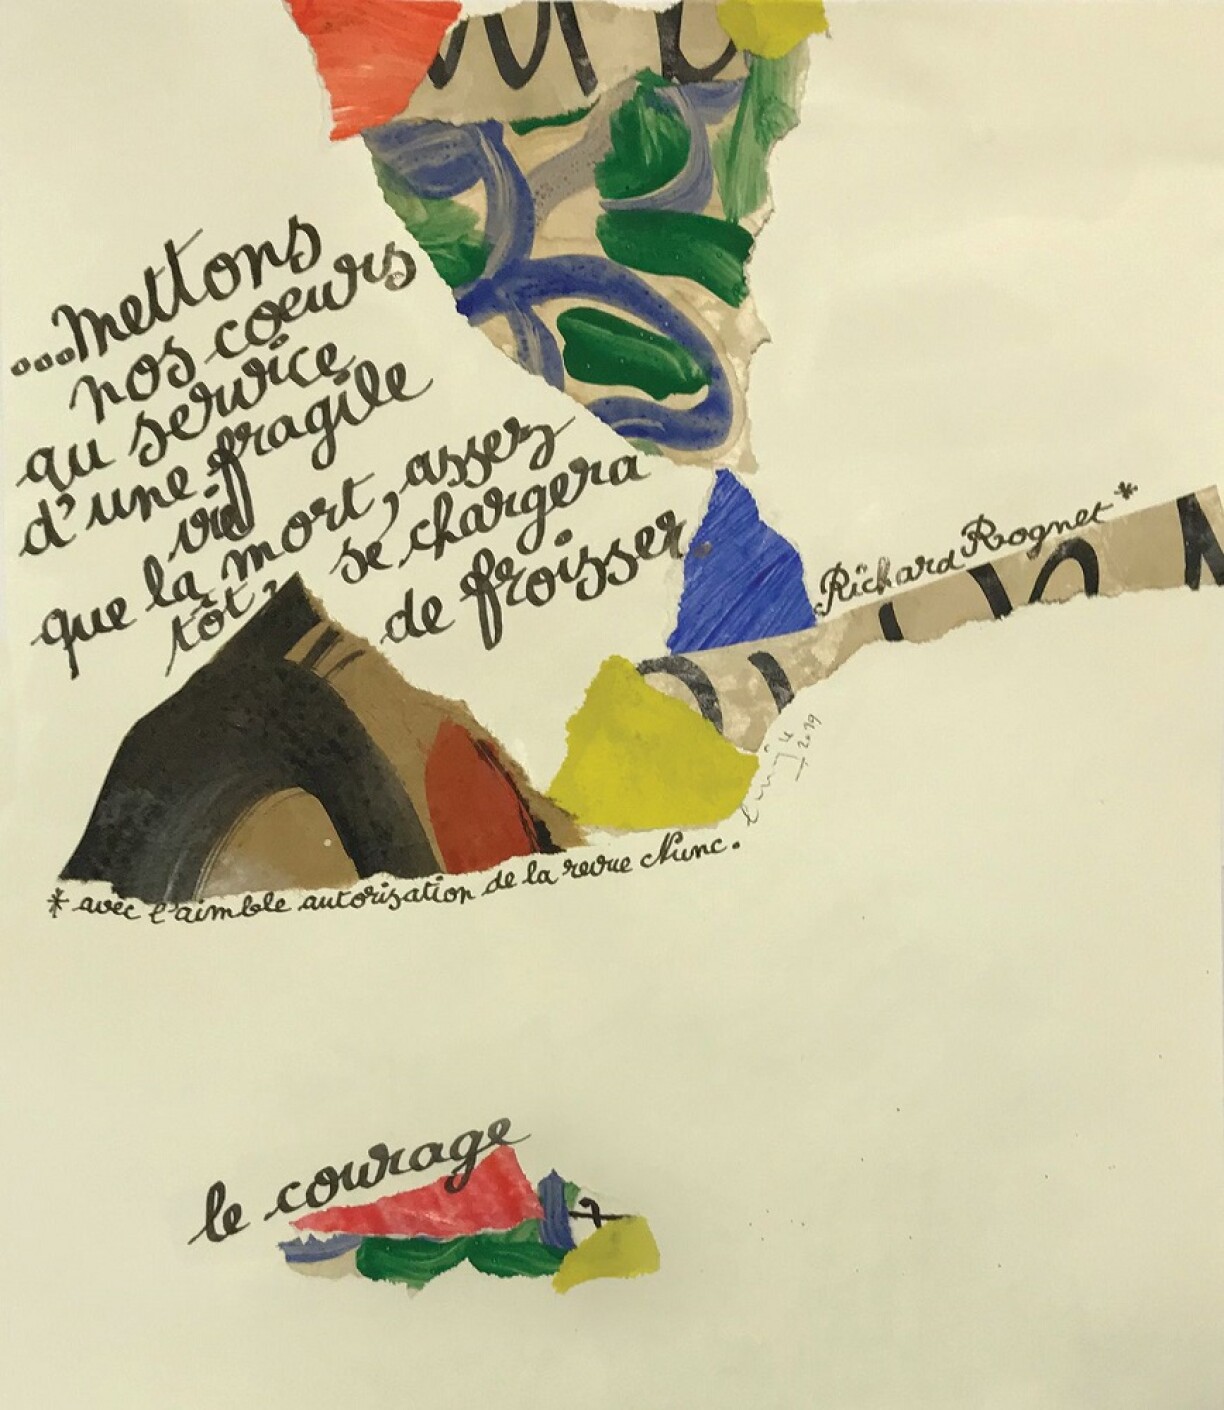 ...mettons
nos coeurs
au service
d'une fragile
vie
que la mort, assez
tôt, se chargera
de froisser.
Richard Rognet*
2019
* avec l'aimble autorisation de la revue Nunc.
le courage